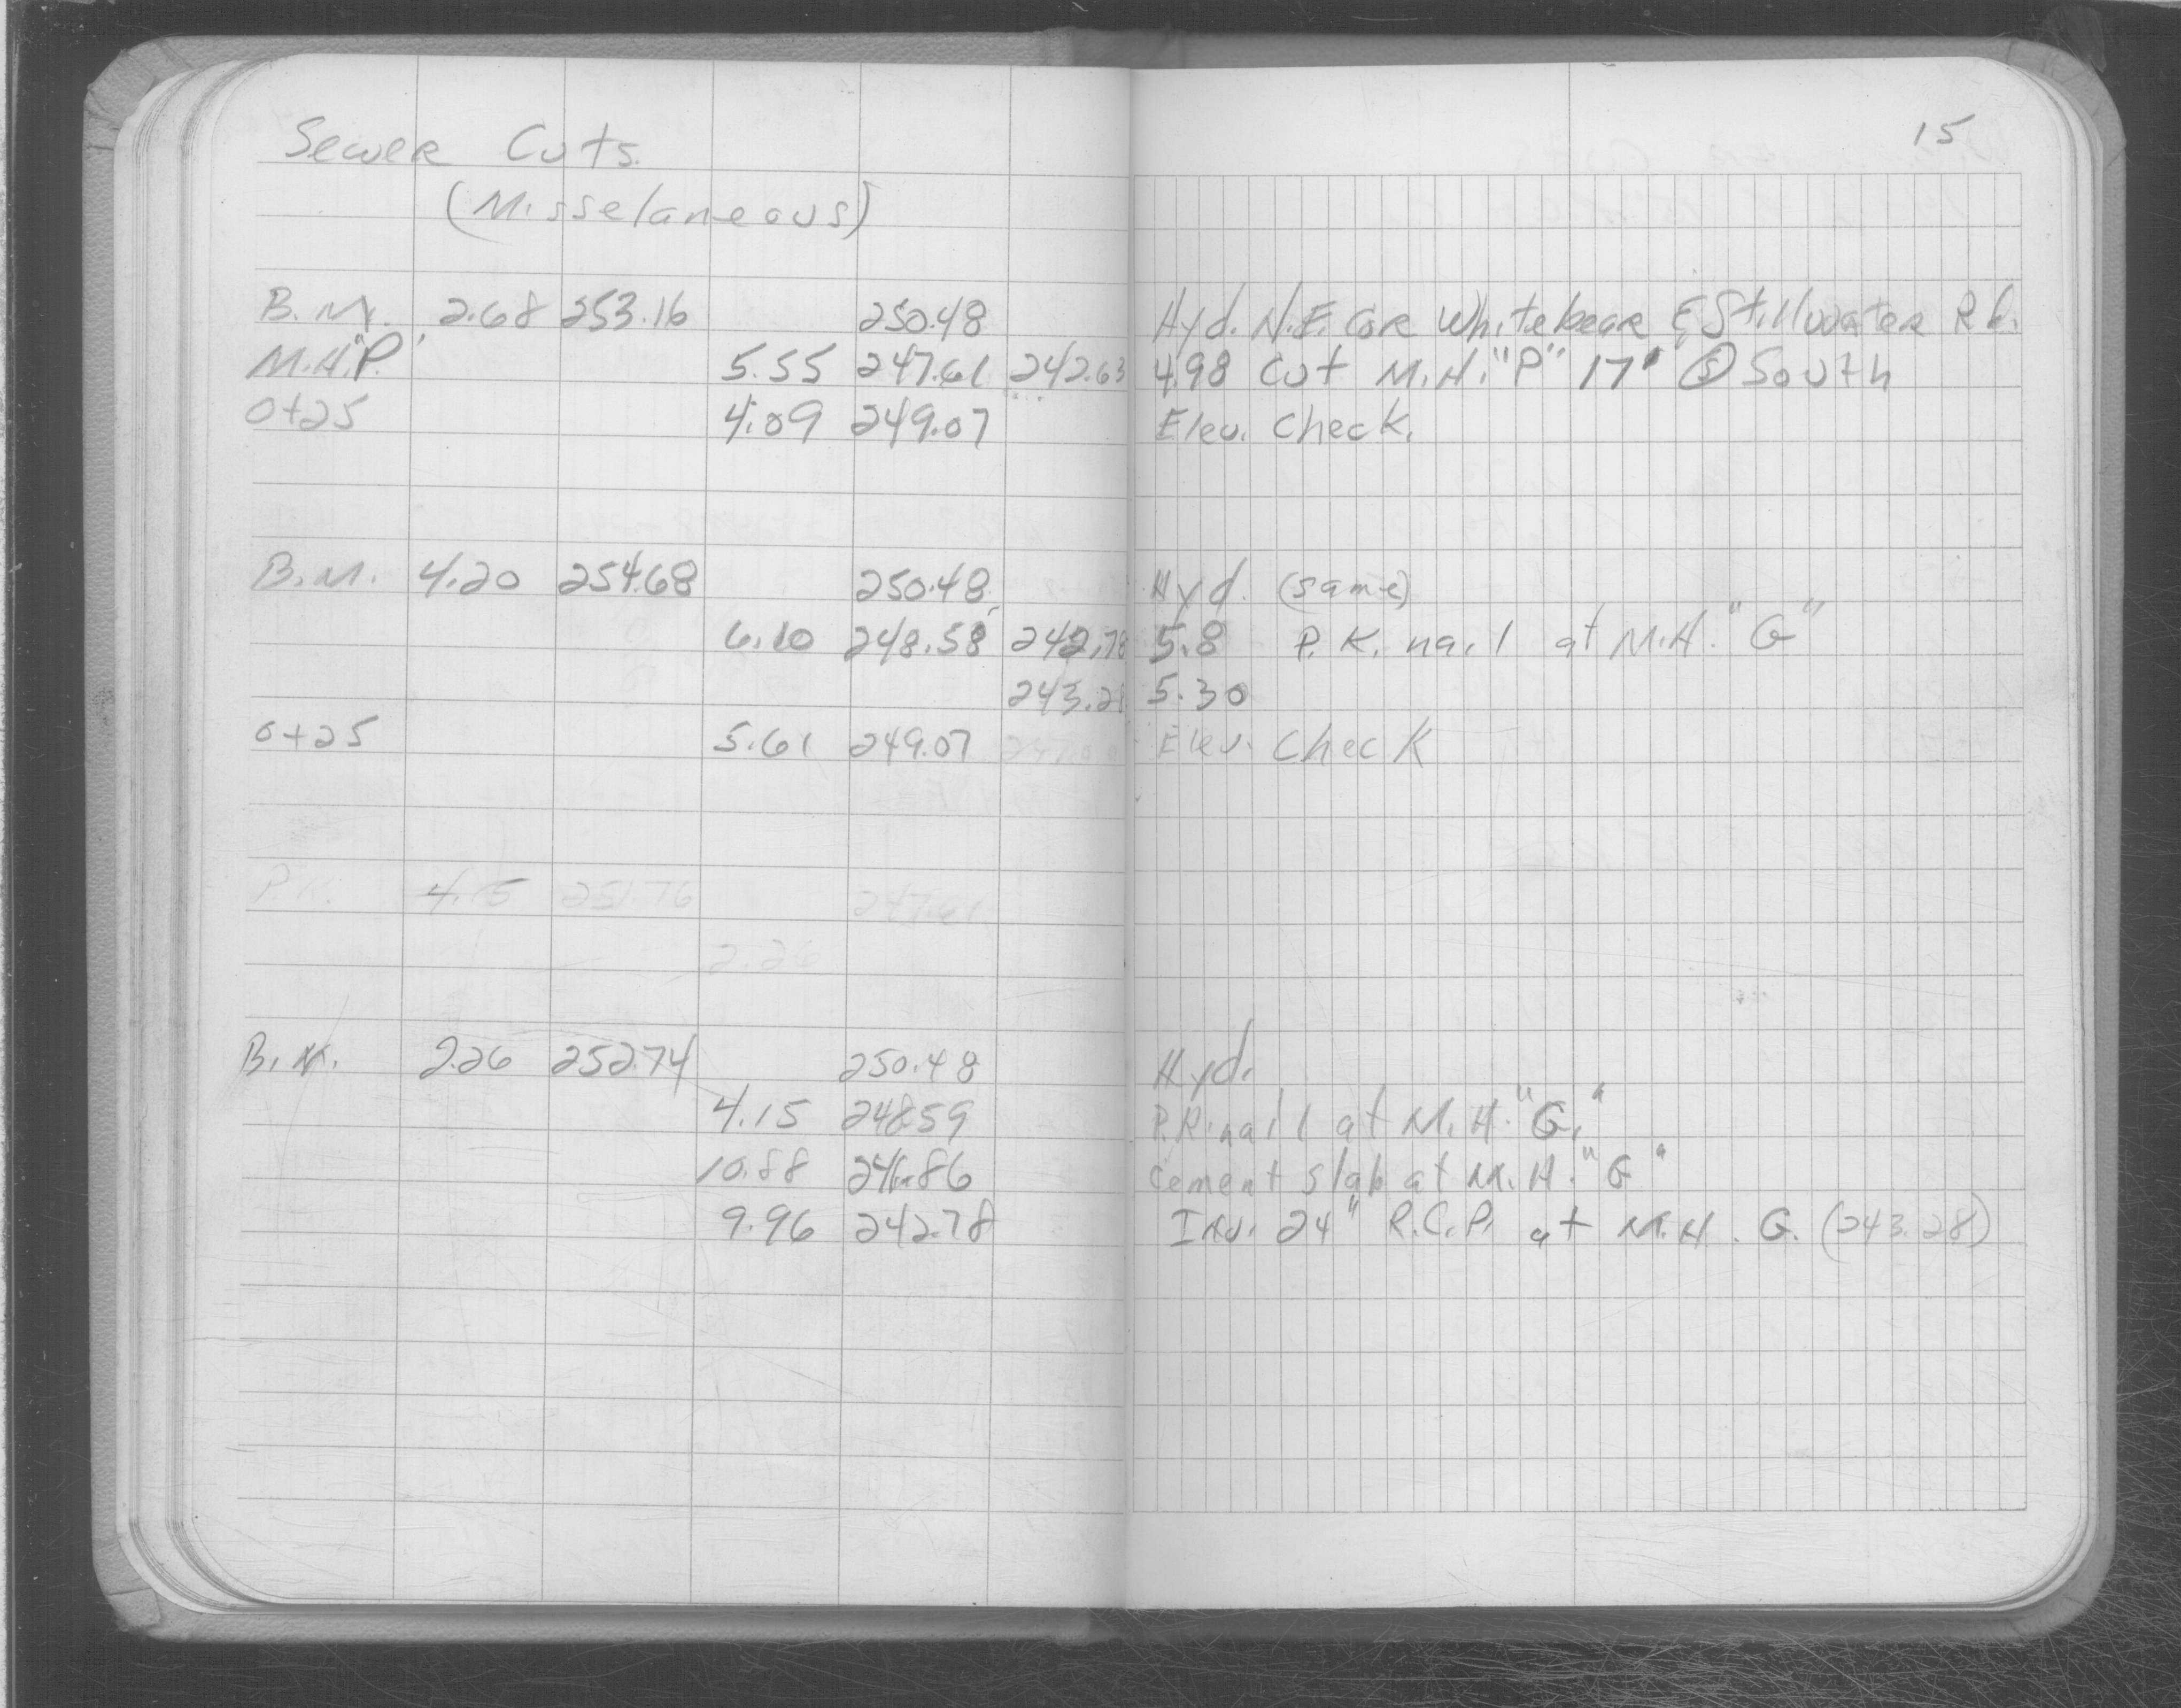 15
Sewer Cuts.
(Misselaneous)
B.M. 2.68 253.16 250.48 Hyd. N.E. Cor Whitebear & Stillwater Rd.
M.H."P" 5.55 247.61 242.63 4.98 Cut M.H. "P" 17' @ South
0+25 4.09 249.07 Elev. Check.
B.M. 4.20 254.68 250.48 Hyd. (same)
6.10 248.58 242.78 5.8 P.K. nail at M.H. "G"
243.28 5.30
0+25 5.61 249.07 Elev. Check
P.K. 4.15 251.76 247.61
2.26
B.M. 2.26 252.74 250.48 Hyd.
4.15 248.59 P.K. nail at M.H. "G."
10.88 241.86 Cement slab at M.H. "G"
9.96 242.78 Inv. 24" R.C.P. at M.H. G. (243.28)